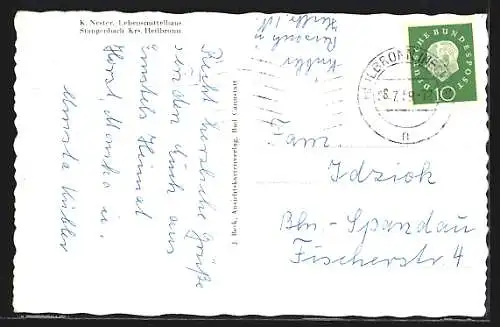 K. Nester, Lebensmittelhaus
Stangenbach Krs. Heilbronn
Recht herzliche Grüße
senden Euch aus
Ernstels Heimat
Horst, Monika u.
Kübler
J. Beck, Ansichtskartenverlag, Bad Cannstatt
Kübler
HEILBRONN
n
DEUTSCHE BUNDESPOST
10
Fam.
Idziok
Bln-Spandau
Fischerstr 4